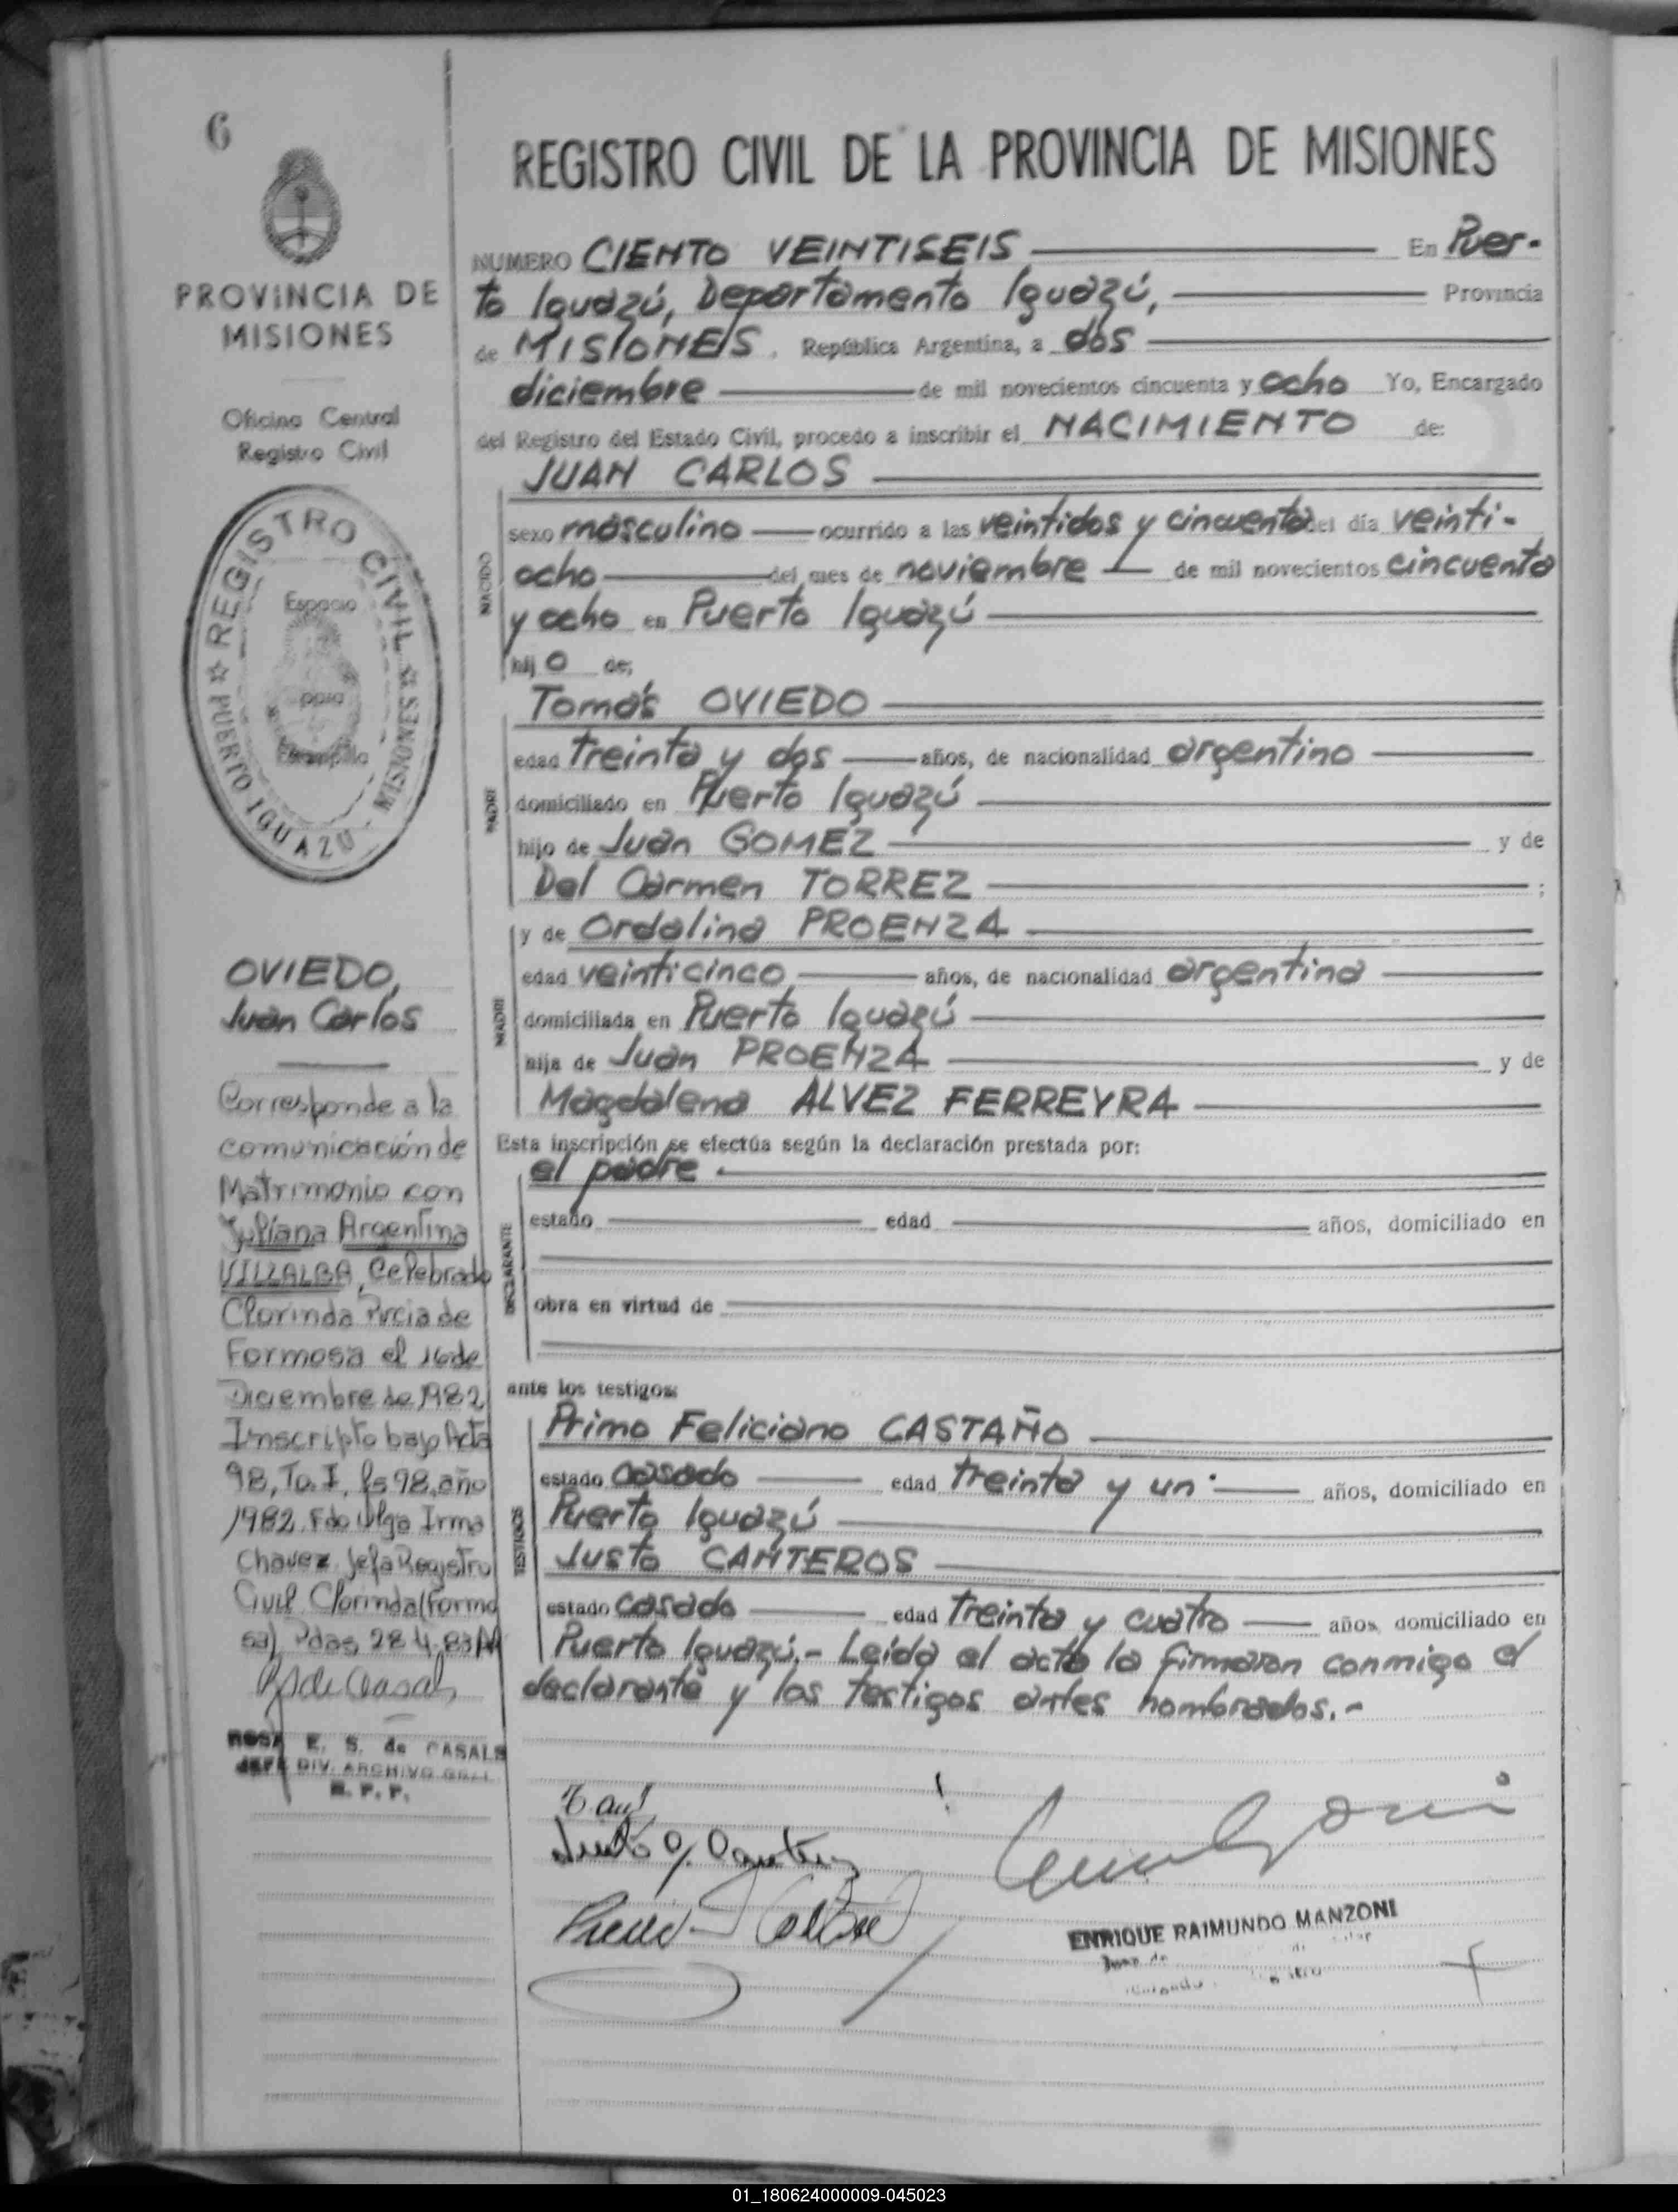 6
REGISTRO CIVIL DE LA PROVINCIA DE MISIONES
PROVINCIA DE
MISIONES
Oficina Central
Registro Civil
REGISTRO CIVIL
PUERTO IGUAZU - MISIONES
Espacio
para
Estampilla
NUMERO CIENTO VEINTISEIS En Puer-
to Iguazú, Departamento Iguazú, Provincia
de MISIONES. República Argentina, a dos
diciembre de mil novecientos cincuenta y ocho Yo, Encargado
del Registro del Estado Civil, procedo a inscribir el NACIMIENTO de:
JUAN CARLOS
NACIDO
sexo masculino ocurrido a las veintidos y cincuenta del día veinti-
ocho del mes de noviembre de mil novecientos cincuenta
y ocho en Puerto Iguazú
hij o de:
Tomás OVIEDO
PADRE
edad treinta y dos años, de nacionalidad argentino
domiciliado en Puerto Iguazú
hijo de Juan GOMEZ y de
Del Carmen TORREZ ;
y de Ordalina PROENZA
MADRE
edad veinticinco años, de nacionalidad argentina
domiciliada en Puerto Iguazú
hija de Juan PROENZA y de
Magdalena ALVEZ FERREYRA
Esta inscripción se efectúa según la declaración prestada por:
el padre.
DECLARANTE
estado edad años, domiciliado en
obra en virtud de
ante los testigos:
Primo Feliciano CASTAÑO
TESTIGOS
estado casado edad treinta y un años, domiciliado en
Puerto Iguazú
Justo CANTEROS
estado casado edad treinta y cuatro años, domiciliado en
Puerto Iguazú.- Leída el acta la firmaron conmigo el
declarante y los testigos antes nombrados.-
OVIEDO,
Juan Carlos
Corresponde a la
comunicación de
Matrimonio con
Juliana Argentina
VILLALBA, Celebrado
Clorinda Pvcia de
Formosa el 16 de
Diciembre de 1982
Inscripto bajo Acta
98, To. I, fs 98, año
1982. Fdo Olga Irma
Chavez Jefa Registro
Civil Clorinda (Formo
sa) Pdas 28.4.83
ROSA E. S. de CASALS
JEFE DIV. ARCHIVO GRAL.
R. P. P.
ENRIQUE RAIMUNDO MANZONI
01_180624000009-045023